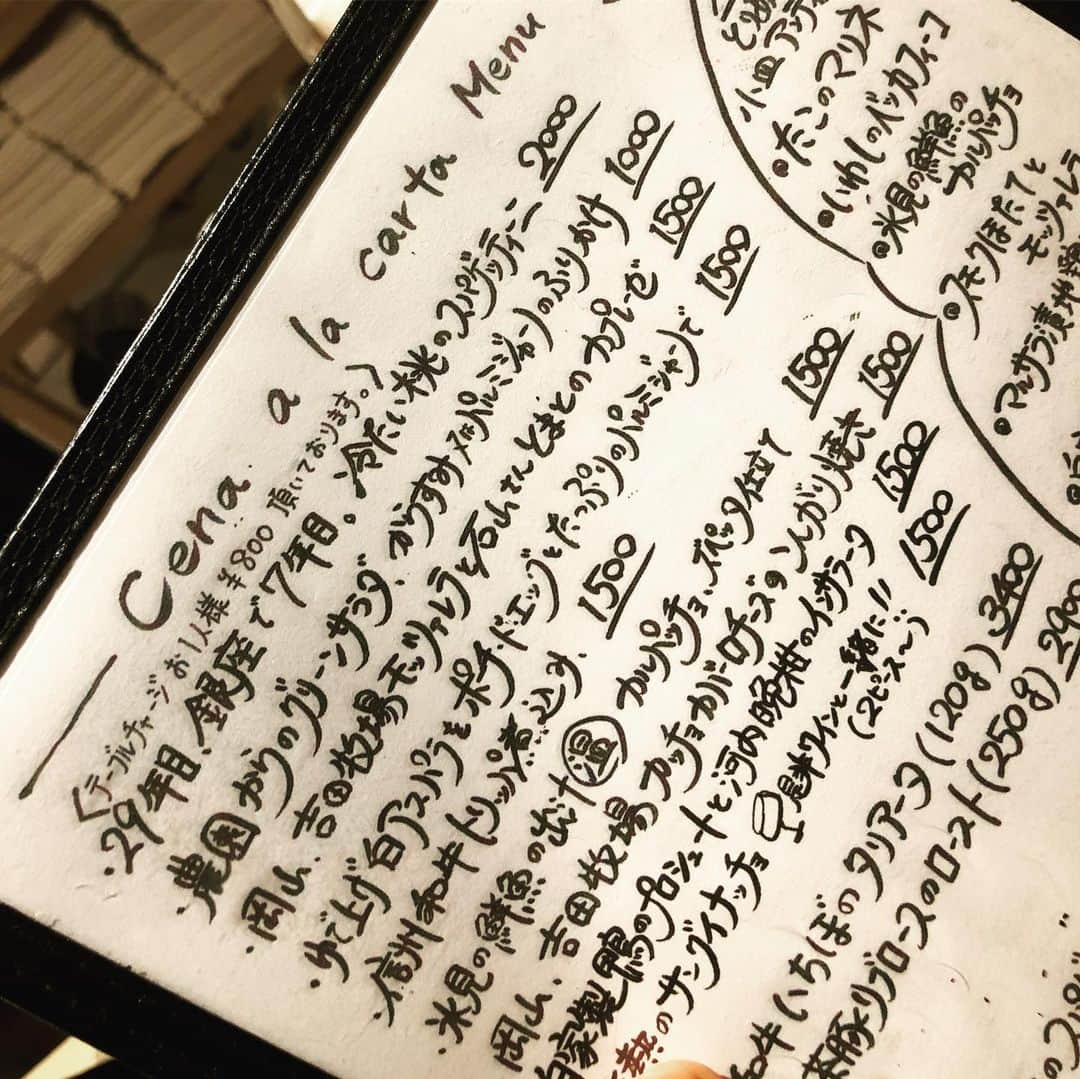 Cena a la carta Menu
(テーブルチャージお1人様¥800頂いております。)
・29年目、銀座で17年目。冷たい桃のスパゲッティーニ 2000
・農園からのグリーンサラダ、からすみ パルミジャーノのふりかけ 1000
・岡山、吉田牧場モッツァレラと石山さんとまとのカプレーゼ 1500
・ゆで上げ白アスパラをポーチドエッグとたっぷりのパルミジャーノで 1500
・信州和牛トリッパ煮込み、 1500
・氷見の鮮魚の出汁 温 カルパッチョ、ズッパ仕立て 1500
岡山、吉田牧場カッチョカバロチーズのこんがり焼き 1500
自家製鴨のプロシュートと河内晩柑のインサラータ 1500
熱のサングイナッチョ 昆米ワインと一緒に!! 1500
(2ピース〜)
和牛いちぼのタリアータ(120g) 3400
茶豚リブロースのロースト(250g) 2900
小皿アンティ
・たこのマリネ
・いわしのベッカフィーコ
・氷見の鮮魚の
カルパッチョ
・スモークほたてと
モッツァレラ
・マルサラ漬地鶏